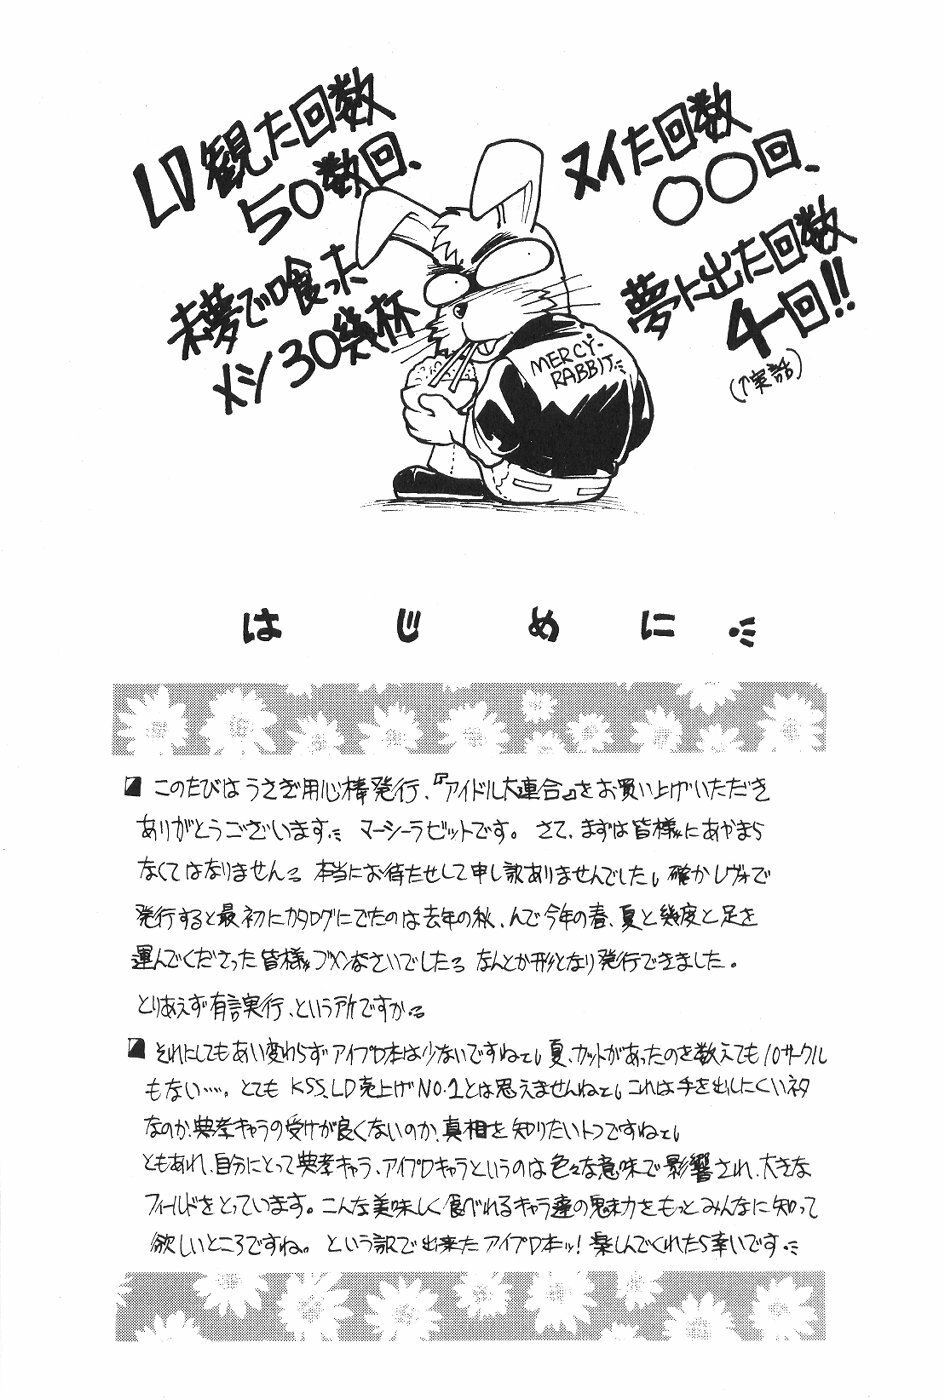 LD観た回数
50数回、
未夢で喰った
メシ30幾杯
ヌイた回数
〇〇回、
夢に出た回数
4回!!
(↑実話)
MERCY-
RABBIT
はじめに
このたびはうさぎ用心棒発行、『アイドル大連合』をお買い上げいただき
ありがとうございます マーシーラビットです。さて、まずは皆様にあやまら
なくてはなりません。本当にお待たせして申し訳ありませんでした。確かレヴォで
発行すると最初にカタログにでたのは去年の秋、んで今年の春、夏と幾度と足を
運んでくださった皆様ゴメンなさいでした。なんとか形となり発行できました。
とりあえず有言実行、という所ですか。
それにしてもあい変わらずアイプロ本は少ないですねェ。夏、カットがあったのを数えても10サークル
もない……。とても KSS、LD売上げNO.1とは思えませんねェ。これは手を出しにくいネタ
なのか、典孝キャラの受けが良くないのか、真相を知りたいトコですねェ。
ともあれ、自分にとって典孝キャラ、アイプロキャラというのは色々な意味で影響され、大きな
フィールドをとっています。こんな美味しく食べれるキャラ達の魅力をもっとみんなに知って
欲しいところですね。という訳で出来たアイプロ本ッ! 楽しんでくれたら幸いです